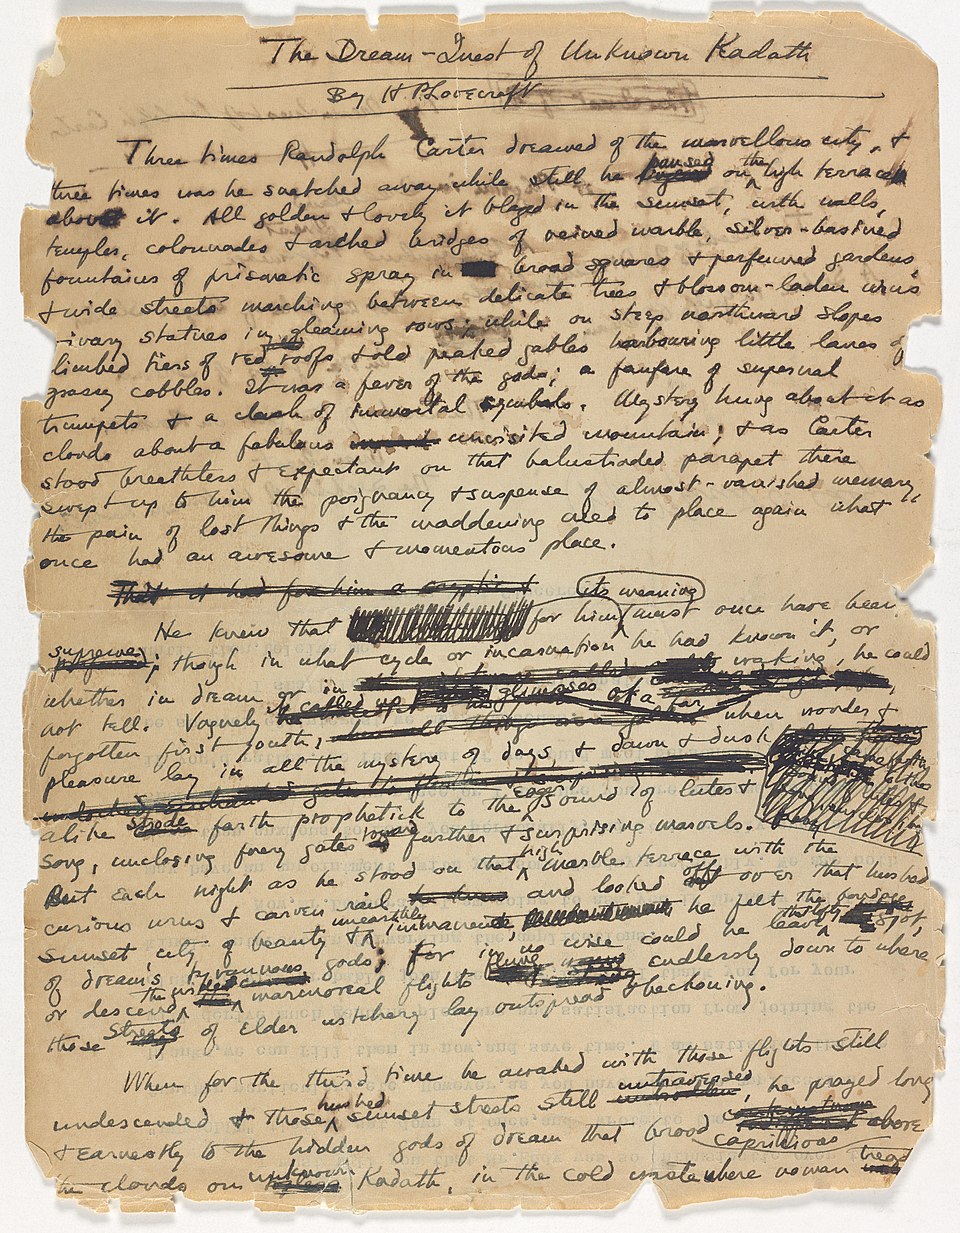 The Dream-Quest of Unknown Kadath
By H. P. Lovecraft
Three times Randolph Carter dreamed of the marvellous city, &
three times was he snatched away while still he paused on the high terrace
above it. All golden & lovely it blazed in the sunset, with walls,
temples, colonnades & arched bridges of veined marble, silver-basined
fountains of prismatic spray in broad squares & perfumed gardens,
& wide streets marching between delicate trees & blossom-laden urns
ivory statues in gleaming rows; while on steep northward slopes
limbed tiers of red roofs & old peaked gables harbouring little lanes of
grassy cobbles. It was a fever of the gods; a fanfare of supernal
trumpets & a clash of immortal cymbals. Mystery hung about it as
clouds about a fabulous unvisited mountain; & as Carter
stood breathless & expectant on that balustraded parapet there
swept up to him the poignancy & suspense of almost-vanished memory,
the pain of lost things & the maddening need to place again what
once had an awesome & momentous place.
That it had for him a cryptic
He knew that for him its meaning must once have been
supreme; though in what cycle or incarnation he had known it, or
whether in dream or in waking, he could
not tell. Vaguely it called up glimpses of a far,
forgotten first youth, when wonder &
pleasure lay in all the mystery of days & dawn & dusk
alike strode forth prophetick to the eager sound of lutes &
song, unclosing faery gates toward further & surprising marvels.
But each night as he stood on that high marble terrace with the
curious urns & carven rail and looked off over that hushed
sunset city of beauty & unearthly immanence, he felt the bondage
of dream's tyrannous gods; for in no wise could he leave that lofty spot,
or descend the wide marmoreal flights flung endlessly down to where
those streets of elder witchery lay outspread & beckoning.
When for the third time he awaked with those flights still
undescended & those hushed sunset streets still untraversed, he prayed long
& earnestly to the hidden gods of dream that brood capricious above
the clouds on unknown Kadath, in the cold waste where no man treads